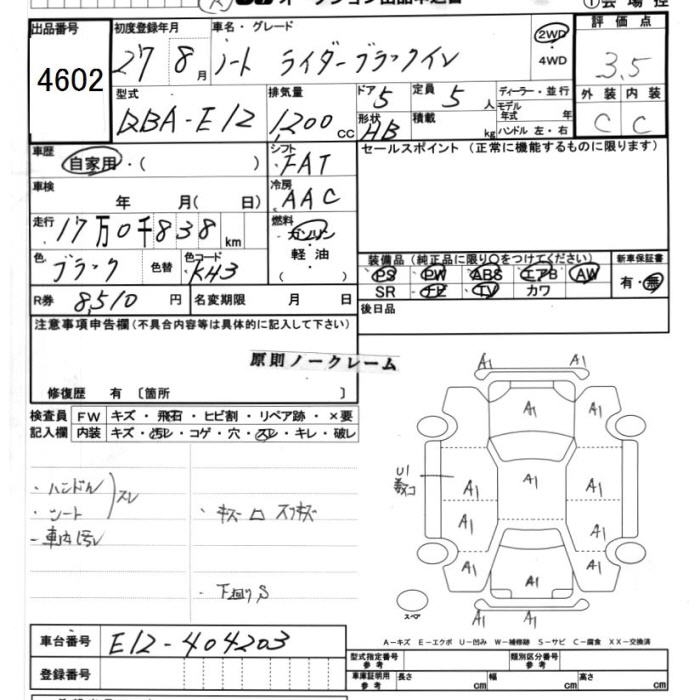 出品番号
4602
初度登録年月
27 8月
車名・グレード
ノート ライダーブラックイン
2WD
・
4WD
評価点
3.5
型式
DBA-E12
排気量
1,200 cc
ドア 5
定員 5 人
形状 HB
積載 kg
ディーラー・並行
モデル年式 年
ハンドル 左・右
外装 内装
C C
車歴
自家用・( )
シフト
FAT
車検
年 月( 日)
冷房
AAC
走行
17万0千838 km
燃料
ガソリン
・
軽油
( )
色
ブラック
色替
色コード
KH3
R券 8,510 円
名変期限 月 日
セールスポイント(正常に機能するものに限ります)
装備品(純正品に限り○をつけてください)
新車保証書
PS PW ABS エアB AW
SR ナビ TV カワ
有・無
後日品
注意事項申告欄(不具合内容等は具体的に記入して下さい)
原則ノークレーム
修復歴 有〔箇所 〕
検査員記入欄
FW キズ・飛石・ヒビ割・リペア跡・×要
内装 キズ・汚レ・コゲ・穴・スレ・キレ・破レ
・ハンドル
・シート
スレ
・車内汚レ
・キズ ロ スリキズ
・下廻りS
A1 A1
A1 A1
U1
A1 A1 A1
A1 A1
A1 A1 A1
A1 A1
スペア
A-キズ E-エクボ U-凹み W-補修跡 S-サビ C-腐食 XX-交換済
車台番号
E12-404203
登録番号
型式指定番号
参考
類別区分番号
参考
車庫証明用
参考
長さ cm
幅 cm
高さ cm